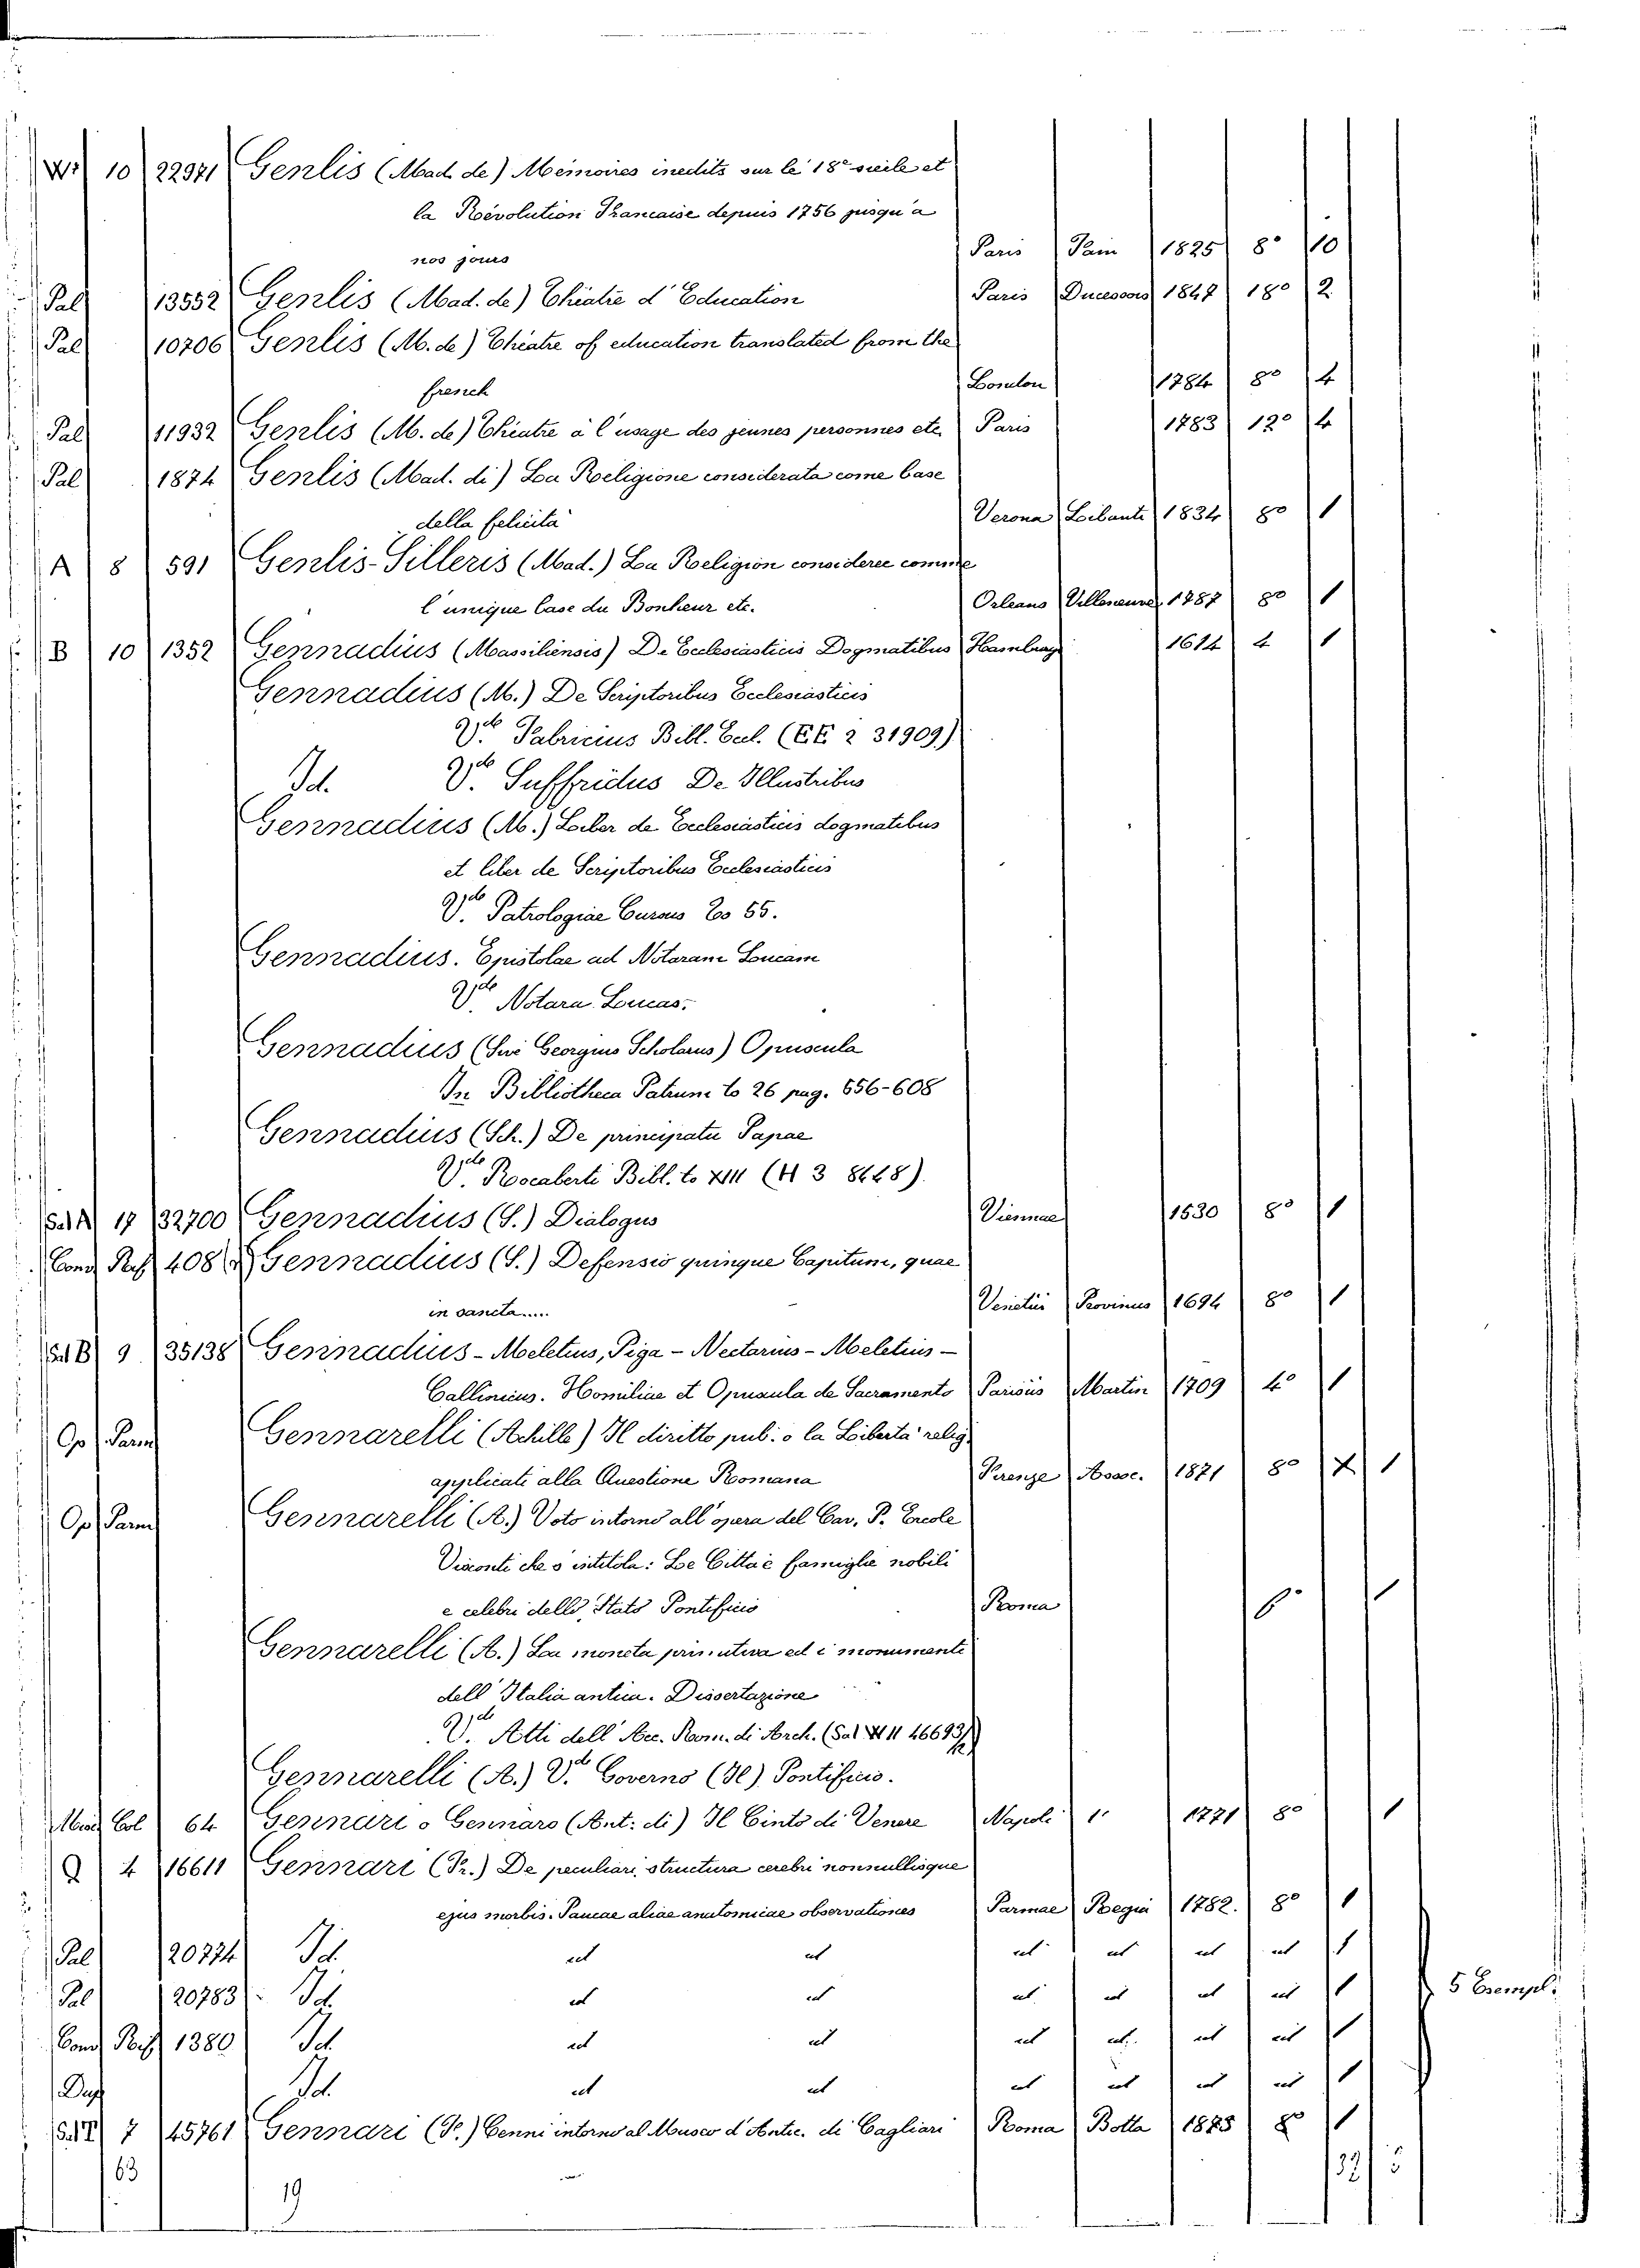 10 22971 Genlis (Mad. de) Memoires inedits sur le 18e siècle et
la Révolution Française depuis 1756 jusqu'a
nos jours Paris 1825 8° 10
Pal 13552 Genlis (Mad. de) Théatre d'Education Paris 1847 18° 2
Pal 10706 Genlis (M. de) Theatre of education translated from the
french London 1784 8° 4
Pal 11932 Genlis (M. de) Théatre à l'usage des jeunes personnes etc. Paris 1783 12° 4
Pal 1874 Genlis (Mad. di) La Religione considerata come base
della felicità Verona Libanti 1834 8° 1
A 8 591 Genlis-Silleris (Mad.) La Religion considerée comme
l'unique base du Bonheur etc. Orleans Villeneuve 1787 8° 1
B 10 1352 Gennadius (Massiliensis) De Ecclesiasticis Dogmatibus Hamburg 1614 4 1
Gennadius (M.) De Scriptoribus Ecclesiasticis
V. Fabricius Bibl. Eccl. (EE 2 31909)
Id. V. Suffridus De Illustribus
Gennadius (M.) Liber de Ecclesiasticis dogmatibus
et liber de Scriptoribus Ecclesiasticis
V. Patrologiae Cursus To 55.
Gennadius. Epistolae ad Notaram Lucam
V. Notara Lucas.
Gennadius (Sive Georgius Scholarus) Opuscula
In Bibliotheca Patrum to 26 pag. 556-608
Gennadius (Sch.) De principatu Papae
V. Rocaberti Bibl. to XIII (H 3 8448).
17 32700 Gennadius (S.) Dialogus Viennae 1530 8° 1
408 Gennadius (S.) Defensio quinque Capitum, quae
in sancta..... Venetiis 1694 8° 1
9 35138 Gennadius - Meletius, Piga - Nectarius - Meletius -
Callinicus. Homiliae et Opuscula de Sacramento Parisiis Martin 1709 4° 1
Op Parm Gennarelli (Achille) Il diritto pub: o la Libertà relig.
applicati alla Questione Romana Firenze Assoc. 1871 8° 1
Op Parm Gennarelli (A.) Voto intorno all'opera del Cav. P. Ercole
Visconti che s'intitola: Le Città e famiglie nobili
e celebri dello Stato Pontificio Roma 1
Gennarelli (A.) La moneta primitiva ed i monumenti
dell'Italia antica. Dissertazione
V. Atti dell'Acc. Rom. di Arch.
Gennarelli (A.) V. Governo (Il) Pontificio.
Col 64 Gennari o Gennaro (Ant: di) Il Cinto di Venere Napoli 1771 8° 1
Q 4 16611 Gennari (Fr.) De peculiari structura cerebri nonnullisque
ejus morbis. Paucae aliae anatomicae observationes Parmae Regia 1782. 8° 1
Pal 20774 Id. ut ut ut ut ut ut 1
Pal 20783 Id. ut ut ut ut ut ut 1 5 Exempl.
1380 Id. ut ut ut ut ut ut 1
Id. ut ut ut ut ut ut 1
7 45761 Gennari (P.) Cenni intorno al Museo d'Antic. di Cagliari Roma Botta 1875 8° 1
63
19